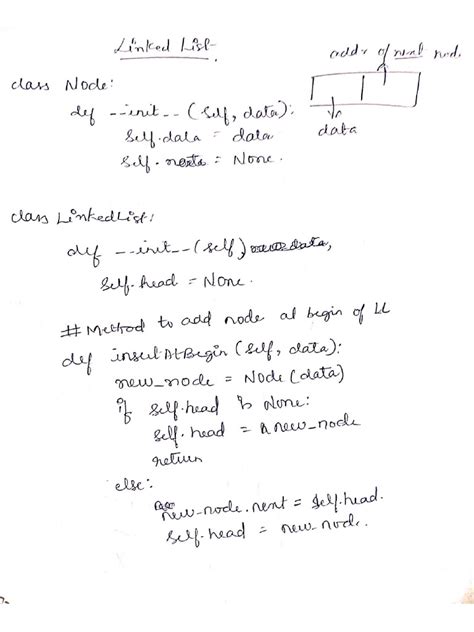 Linked List
addr of next nod.
data
class Node:
def __init__(self, data):
self.data = data
self.next = None.
class LinkedList:
def __init__(self)
self.head = None.
# Method to add node at begin of LL
def insertAtBegin(self, data):
new_node = Node(data)
if self.head is None:
self.head = new_node
return
else:
new_node.next = self.head.
self.head = new_node.